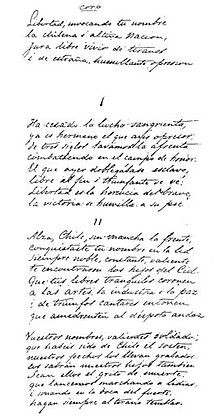 coro
Libertad, invocando tu nombre
la chilena i altiva nacion,
jura libre vivir de tiranos
i de estraña, humillante opresion
I
Ha cesado la lucha sangrienta;
ya es hermano el que ayer opresor;
de tres siglos lavamos la afrenta
combatiendo en el campo de honor.
El que ayer doblegábase esclavo,
libre al fin i triunfante se vé;
Libertad es la herencia del bravo,
la victoria se humilla a su pié.
II
Alza, Chile, sin mancha la frente;
conquistaste tu nombre en la lid;
siempre noble, constante, valiente
te encontraron los hijos del Cid.
Que tus libres tranquilos coronen
a las artes, la industria i la paz
i de triunfos cantares entonen
que amedrenten al déspota audaz.
Vuestros nombres, valientes soldados,
que habeis sido de Chile el sosten,
nuestros pechos los llevan grabados;
los sabrán nuestros hijos tambien.
Sean ellos el grito de muerte
que lancemos marchando a lidiar,
i sonando en la boca del fuerte,
hagan siempre al tirano temblar.